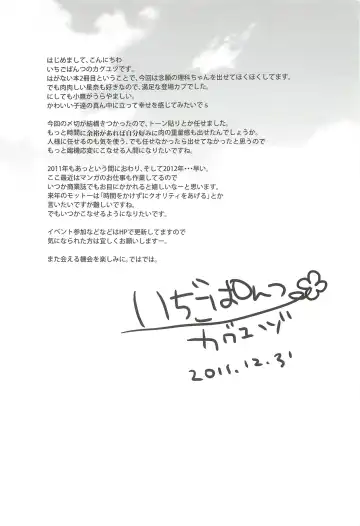 はじめまして、こんにちわ
いちごぱんつのカグユヅです。
はがない本2冊目ということで、今回は念願の理科ちゃんを出せてほくほくしてます。
でも肉肉しい星奈も好きなので、満足な登場カプでした。
にしても小鷹がうらやましい。
かわいい子達の真ん中に立って幸せを感じてみたいでｓ
今回の〆切が結構きつかったので、トーン貼りとか任せました。
もっと時間に余裕があれば自分好みに肉の重量感も出せたんでしょうか。
人様に任せるのも気を使う、でも任せてなかったら出せてなかったと思うので
もっと臨機応変にこなせる人間になりたいですね。
2011年もあっという間におわり、そして2012年・・・早い。
ここ最近はマンガのお仕事も作業してるので
いつか商業誌でもお目にかかれると嬉しいなーと思います。
来年のモットーは「時間をかけずにクオリティをあげる」とか
言いたいですが難しいですね。
でもいつかこなせるようになりたいです。
イベント参加などなどはHPで更新してますので
気になられた方は宜しくお願いしますー。
また会える機会を楽しみに。ではでは。
いちごぱんつ
カグユヅ
2011.12.31